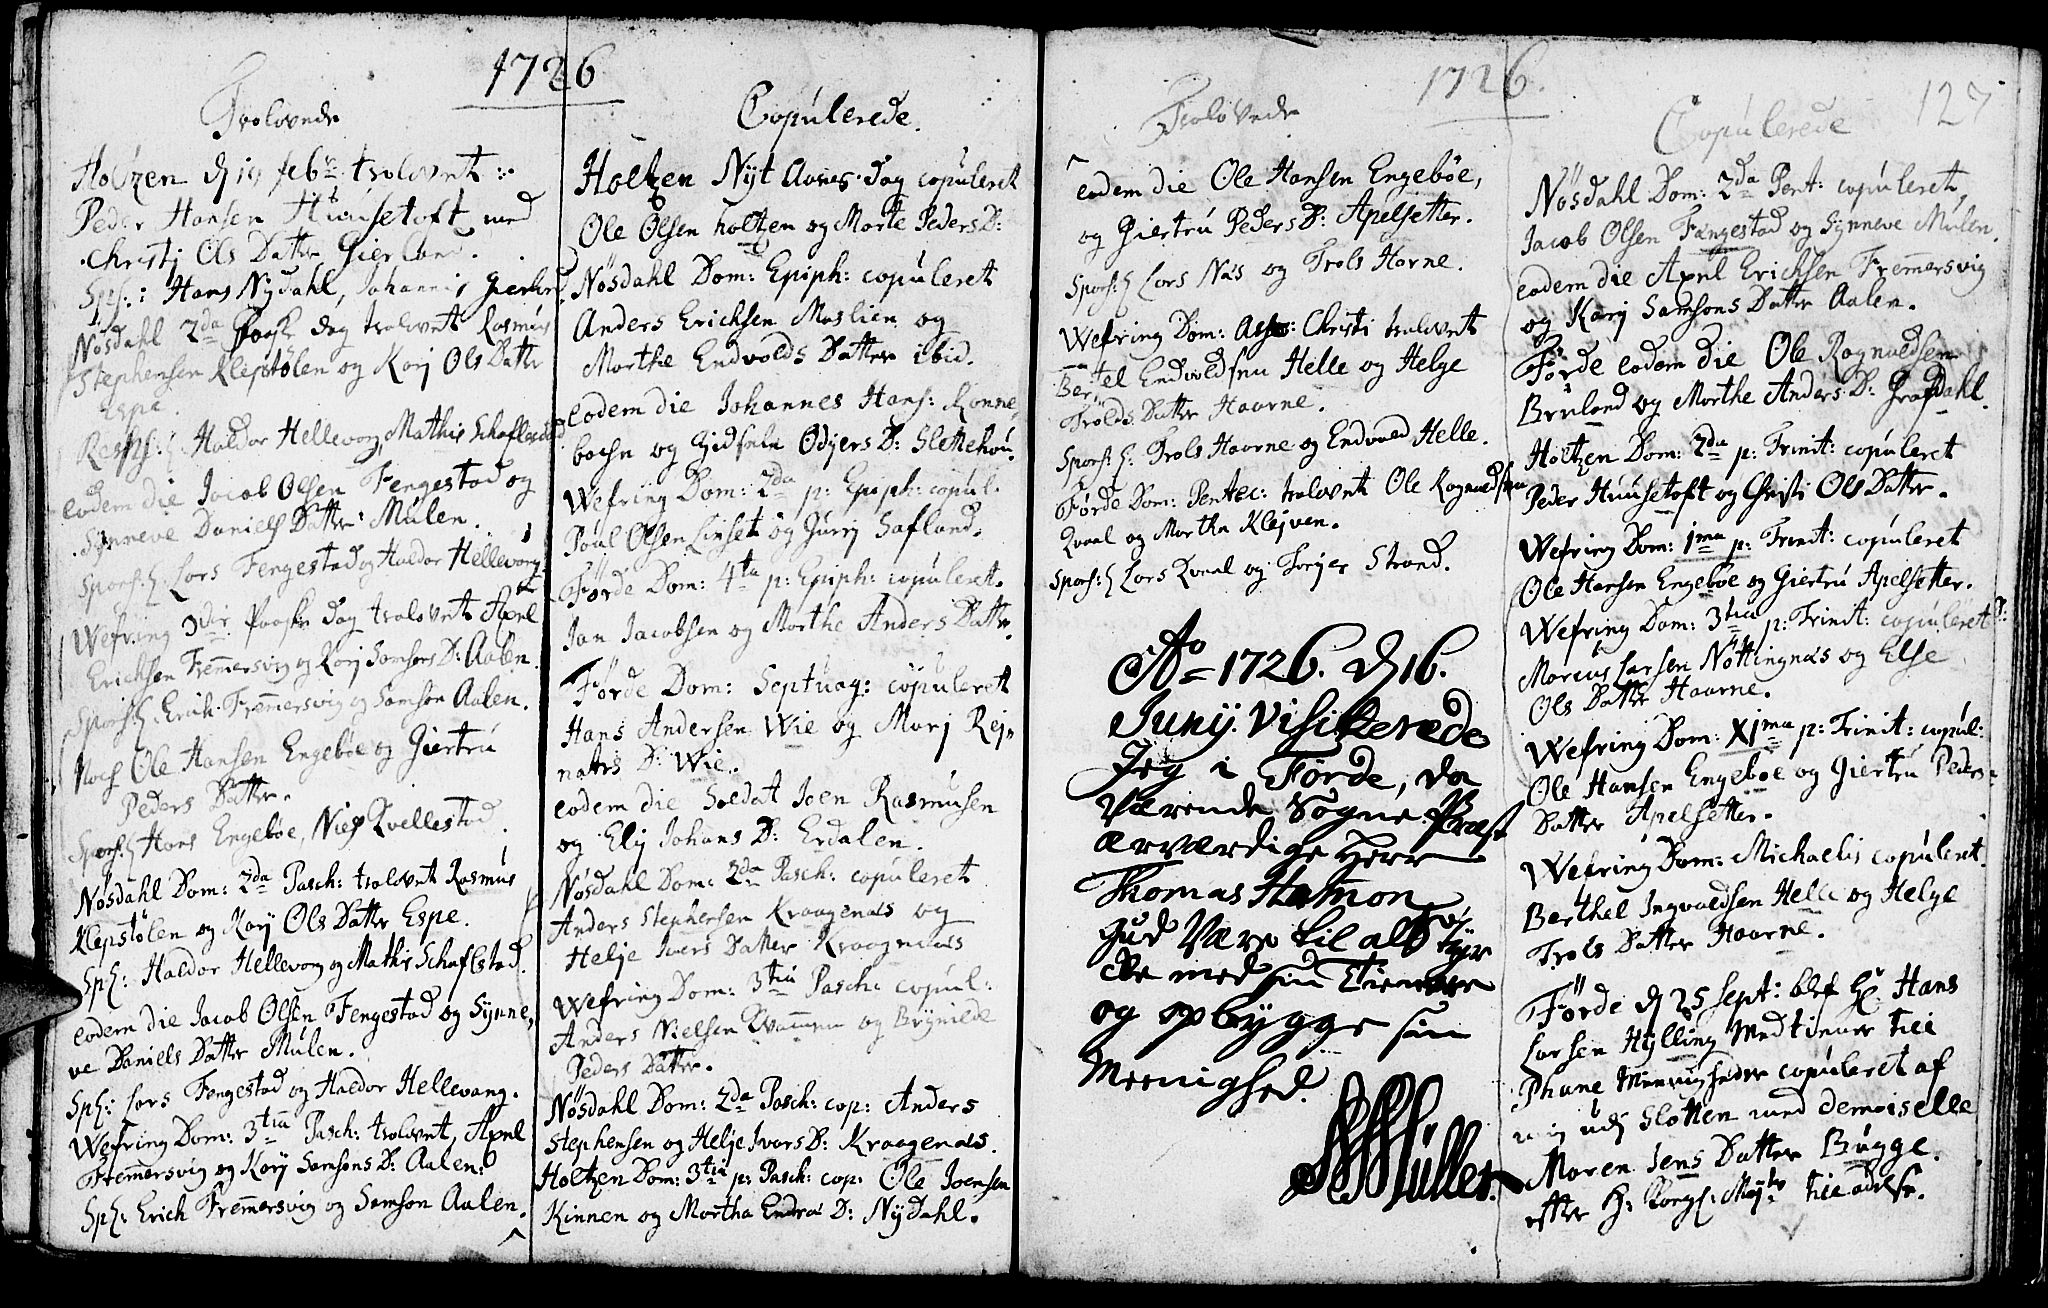 1726
Trolovede
Holtzen d 19 febr: trolovet
Peder Hansen Huusetoft med
Christi Ols Datter Gierland.
Sps: Hans Nydahl, Johannis Gierland
Nøsdahl 2da Paaske dag trolovet Rasmus
Stephensen Klepstølen og Karj Ols Datter
Espe
Haldor Hellevong, Mathis Schaflestad
eodem die Jacob Olsen Fengestad og
Synneve Daniels Datter Mulen.
Spors: Lars Fengestad og Haldor Hellevong
Wefring 3die Paaske dag trolovet Axel
Erichsen Fremmersvig og Karj Samsons D: Aalen.
Spors: Erich Fremmersvig og Samson Aalen.
Noch Ole Hansen Engebøe og Giertru
Peders Datter.
Spors: Hans Engebøe, Niels Qvellestad.
Nøsdahl Dom: 2da Pasch: trolovet Rasmus
Klepstølen og Karj Ols Datter Espe.
Sps: Haldor Hellevong og Mathis Schaflestad.
eodem die Jacob Olsen Fengestad og Synne,
ve Daniels Datter Mulen.
Sps: Lars Fengestad og Haldor Hellevang.
Wefring Dom: 3tia Pasch: trolovet, Axel
Fremmersvig og Karj Samsons D: Aalen:
Sps: Erich Fremmersvig og Samson Aalen.
Copulerede.
Holtzen Nyt Aars Dag copuleret
Ole Olsen holtzen og Marte Peders D:
Nøsdahl Dom: Epiph: copuleret
Anders Erichsen Moslien og
Marthe Endvolds Datter ibid.
eodem die Johannes Hans: Rønne,
bachn og Gidsele Odyers D: Slettehou.
Wefring Dom: 2da p: Epiph: copul.
Poul Olsen Linset og Gurj Safland.
Førde Dom: 4ta p: Epiph: copuleret.
Jan Jacobsen og Marthe Anders Datter.
Førde Dom: Septuag: copuleret
Hans Andersen Wie og Marj Rej,
naters D: Wie.
eodem die Soldat Joen Rasmusen
og Elj Johans D: Erdalen.
Nøsdahl Dom: 2da Pasch: copuleret
Anders Stephensen Kraagenæs og
Helje Ivers Datter Kraagenæs
Wefring Dom: 3tia Pasch: copul:
Anders Nielsen Kvammen og Brynilde
Peders Datter.
Nøsdahl Dom: 2da Pasch: cop: Anders
Stephensen og Helje Ivars D: Kraagenæs.
Holtzen Dom: 3tia p: Pasch: cop: Ole Joensen
Kinnen og Martha Endra D: Nydahl.
1726.
Trolovede
eodem die Ole Hansen Engebøe,
og Giertru Peders D: Apelsetter.
Spors: Lars Nas og Trols Horne.
Wefring Dom: Christi trolovet
Bertel Endvoldsen Helle og Helge
Trolds Datter Haarne.
Spors: Trols Haarne og Endvold Helle.
Førde Dom: Pentec: trolovet Ole Rognvedsen
Qvaal og Martha Klejven.
Spors: Lars Qvaal og Torjer Strand.
Ao 1726. d 16.
Junij. Visiterede
Jeg i Førde, da
Værende Sogne Præst
ærværdige Herr
Thomas Hamon
Gud Være til all Styr
cke med sin Tienere
og opbygge sin
Meenighed.
Müller.
127
Copulerede
Nøsdahl Dom: 2da Pent: copuleret,
Jacob Olsen Fængestad og Synneve Mulen.
eodem die Axel Erichsen Fremmersvig
og Karj Samsons Datter Aalen.
Førde eodem die Ole Rognvedsen
Bruland og Marthe Anders D: Grafdahl.
Holtzen Dom: 2da p: Trinit: copuleret
Peder Huusetoft og Christi Ols Datter.
Wefring Dom: 1ma p: Trinit: copuleret
Ole Hansen Engebøe og Giertru Apelsetter.
Wefring Dom: 3tia p: Trinit: copuleret
Marcus Larsen Nøttingnæs og Else
Ols Datter Haarne.
Wefring Dom: XIma p: Trinit: copul:
Ole Hansen Engebøe og Giertru Peders
Datter Apelsetter.
Wefring Dom: Michaelis copuleret.
Berthel Ingvaldsen Helle og Helge
Trols Datter Haarne.
Førde d 25 Sept: blef Hr Hans
Larsen Hylling Medtiener till
Phane Meenigheder copuleret af
mig udj Slotten med demoiselle
Maren Jens Datter Bugge.
efter H: Kongl: Mayts tilladelse.